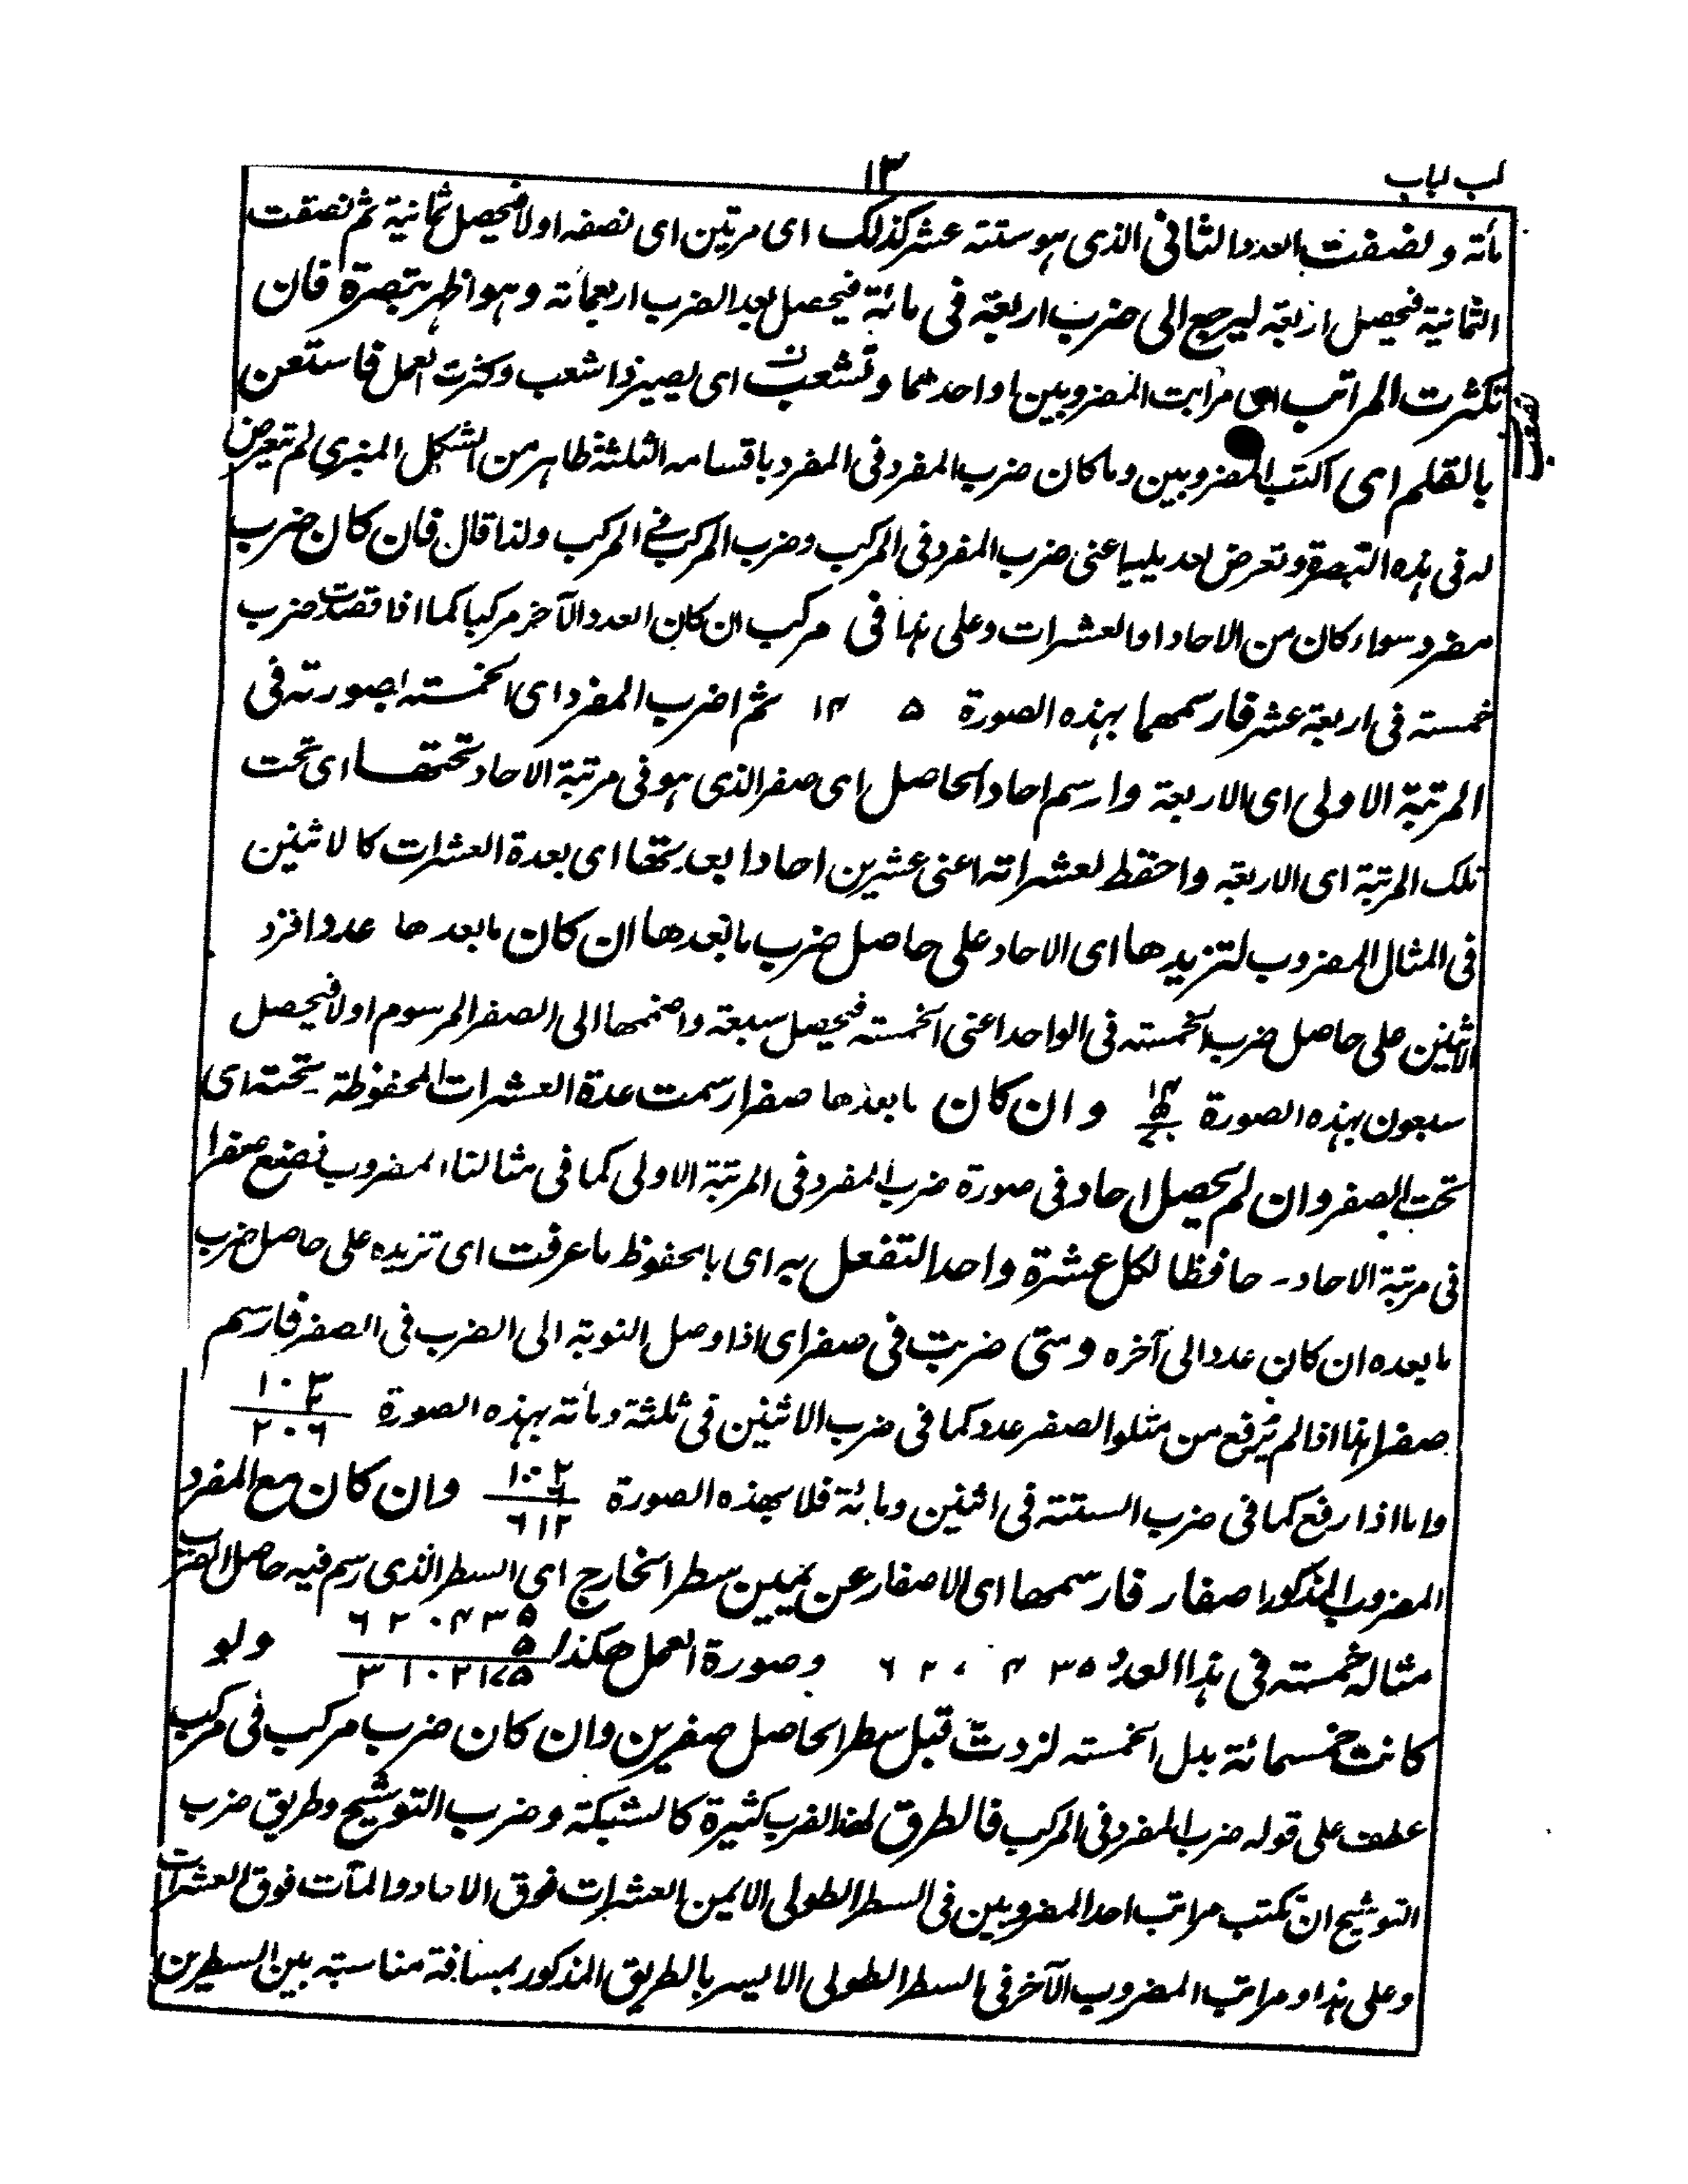 لب لباب
١٣
مأته ونصفت العدد الثانى الذى هو ستته عشر كذلك اى مرتين اى نصفه اولا فيحصل ثمانية ثم نصفت
الثمانية فيحصل اربعة ليرجع الى ضرب اربعة فى مائة فيحصل بعد الضرب اربعمائه وهو اظهر تبصرة فان
تكثرت المراتب اى مراتب المضروبين او احدهما وتشعبت اى يصير ذا شعب وكثرت العمل فاستعن
بالقلم اى اكتب المضروبين وما كان ضرب المفرد فى المفرد باقسامه الثلثة ظاهر من الشكل المنبرى لم تيعرض
له فى هذه التبصرة وتعرض لعديليها عنى ضرب المفرد فى المركب وضرب المركب فى المركب ولذا قال فان كان ضرب
مفرد سواء كان من الاحاد او العشرات وعلى هذا فى مركب ان كان العدد الآخر مركبا كما اذا قصدت ضرب
خمسته فى اربعة عشر فارسمهما بهذه الصورة ۵ ١٤ ثم اضرب المفرد اى الخمسته بصورته فى
المرتبة الاولى اى الاربعة وارسم احاد الحاصل اى صفر الذى هو فى مرتبة الاحاد تحتهقا اى تحت
تلك المرتبة اى الاربعة واحفظ لعشراته اعنى عشرين احادا بعدتها اى بعدة العشرات كالاثنين
فى المثال المضروب لتزيدها اى الاحاد على حاصل ضرب ما بعدها ان كان ما بعدها عددا فزد
الاثنين على حاصل ضرب الخمسته فى الواحد اعنى الخمسته فيحصل سبعة واضممها الى الصفر المرسوم اولا فيحصل
سبعون بهذه الصورة ١٤ ۵ ٧٠ وان كان ما بعدها صفرا رسمت عدة العشرات المحفوظة تحته اى
تحت الصفر وان لم يحصل احاد فى صورة ضرب المفرد فى المرتبة الاولى كما فى مثالنا المضروب فضع صفرا
فى مرتبة الاحاد - حافظا لكل عشرة واحدا لتفعل به اى بالمحفوظ ما عرفت اى تزيده على حاصل ضرب
ما بعده ان كان عددا الى آخره ومتى ضربت فى صفر اى اذا وصل النوبة الى الضرب فى الصفر فارسم
صفرا هذا اذا لم يرفع من متلو الصفر عدد كما فى ضرب الاثنين فى ثلثة ومأته بهذه الصورة ١٠٣ ٢ ٢٠٦
واما اذا رفع كما فى ضرب الستته فى اثنين ومائة فلا بهذه الصورة ١٠٢ ٦ ٦١٢ وان كان مع المفرد
المضروب المذكور اصفار فارسمها اى الاصفار عن يمين سطر الخارج اى السطر الذى رسم فيه حاصل الضرب
مثاله خمسته فى هذا العدد ٦٢٠٤٣۵ وصورة العمل هكذا ٦٢٠٤٣۵ ۵ ٣١٠٢١٧۵ ولو
كانت خمسمائة بدل الخمسته لزدت قبل سطر الحاصل صفرين وان كان ضرب مركب فى مركب
عطف على قوله ضرب المفرد فى المركب فالطرق لهذا الضرب كثيرة كالشبكة وضرب التوشيح وطريق ضرب
التوشيح ان تكتب مراتب احد المضروبين فى السطر الطولى الايمن العشرات فوق الاحاد والمآت فوق العشرات
وعلى هذا ومراتب المضروب الآخر فى السطر الطولى الايسر بالطريق المذكور بمسافة مناسبة بين السطرين